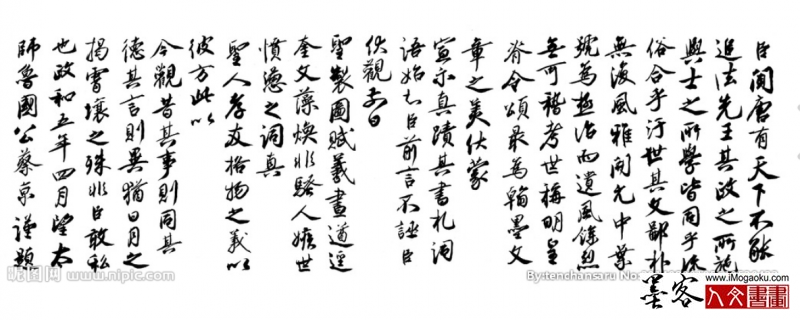 臣聞唐有天下不能
追法先王其政之所施
與士之所學皆同乎流
俗合乎汙世其文鄙朴
無復風雅開元中葉
號為極治而遺風餘烈
無可稽考世稱明皇
脊令頌最為翰墨文
章之美伏蒙
宣示真蹟其書札詞
語始知臣前言不誣臣
伏觀前日
聖製圖賦羲畫遒逕
奎文藻煥非騷人嫉世
憤懣之詞真
聖人孝友格物之義以
彼方此以
今觀昔其事則同其
德其言則異猶日月之
揭霄壤之殊非臣敢私
也政和五年四月望太
師魯國公蔡京謹題
昵图网 www.nipic.com
By:tenchansaru No:
www.iMogaoku.com
墨客
人文書畫